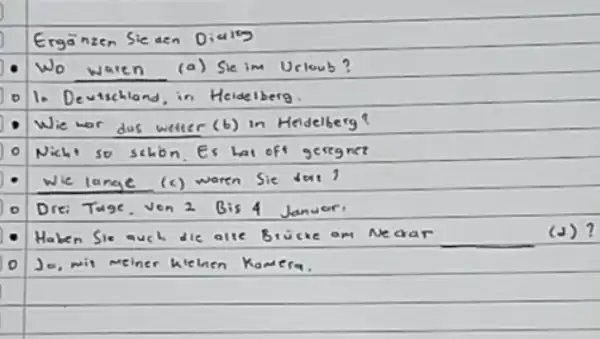 Ergänzen Sie den Dialog
• Wo waren (a) Sie im Urlaub?
o In Deutschland, in Heidelberg.
• Wie war das wetter (b) in Heidelberg?
o Nicht so schön. Es hat oft geregnet
• Wie lange (c) waren Sie dort?
o Drei Tage, von 2 Bis 4 Januari
• Haben Sie auch die alte Brücke am Neckar ______ (d)?
o Ja, mit meiner kleinen Kamera.